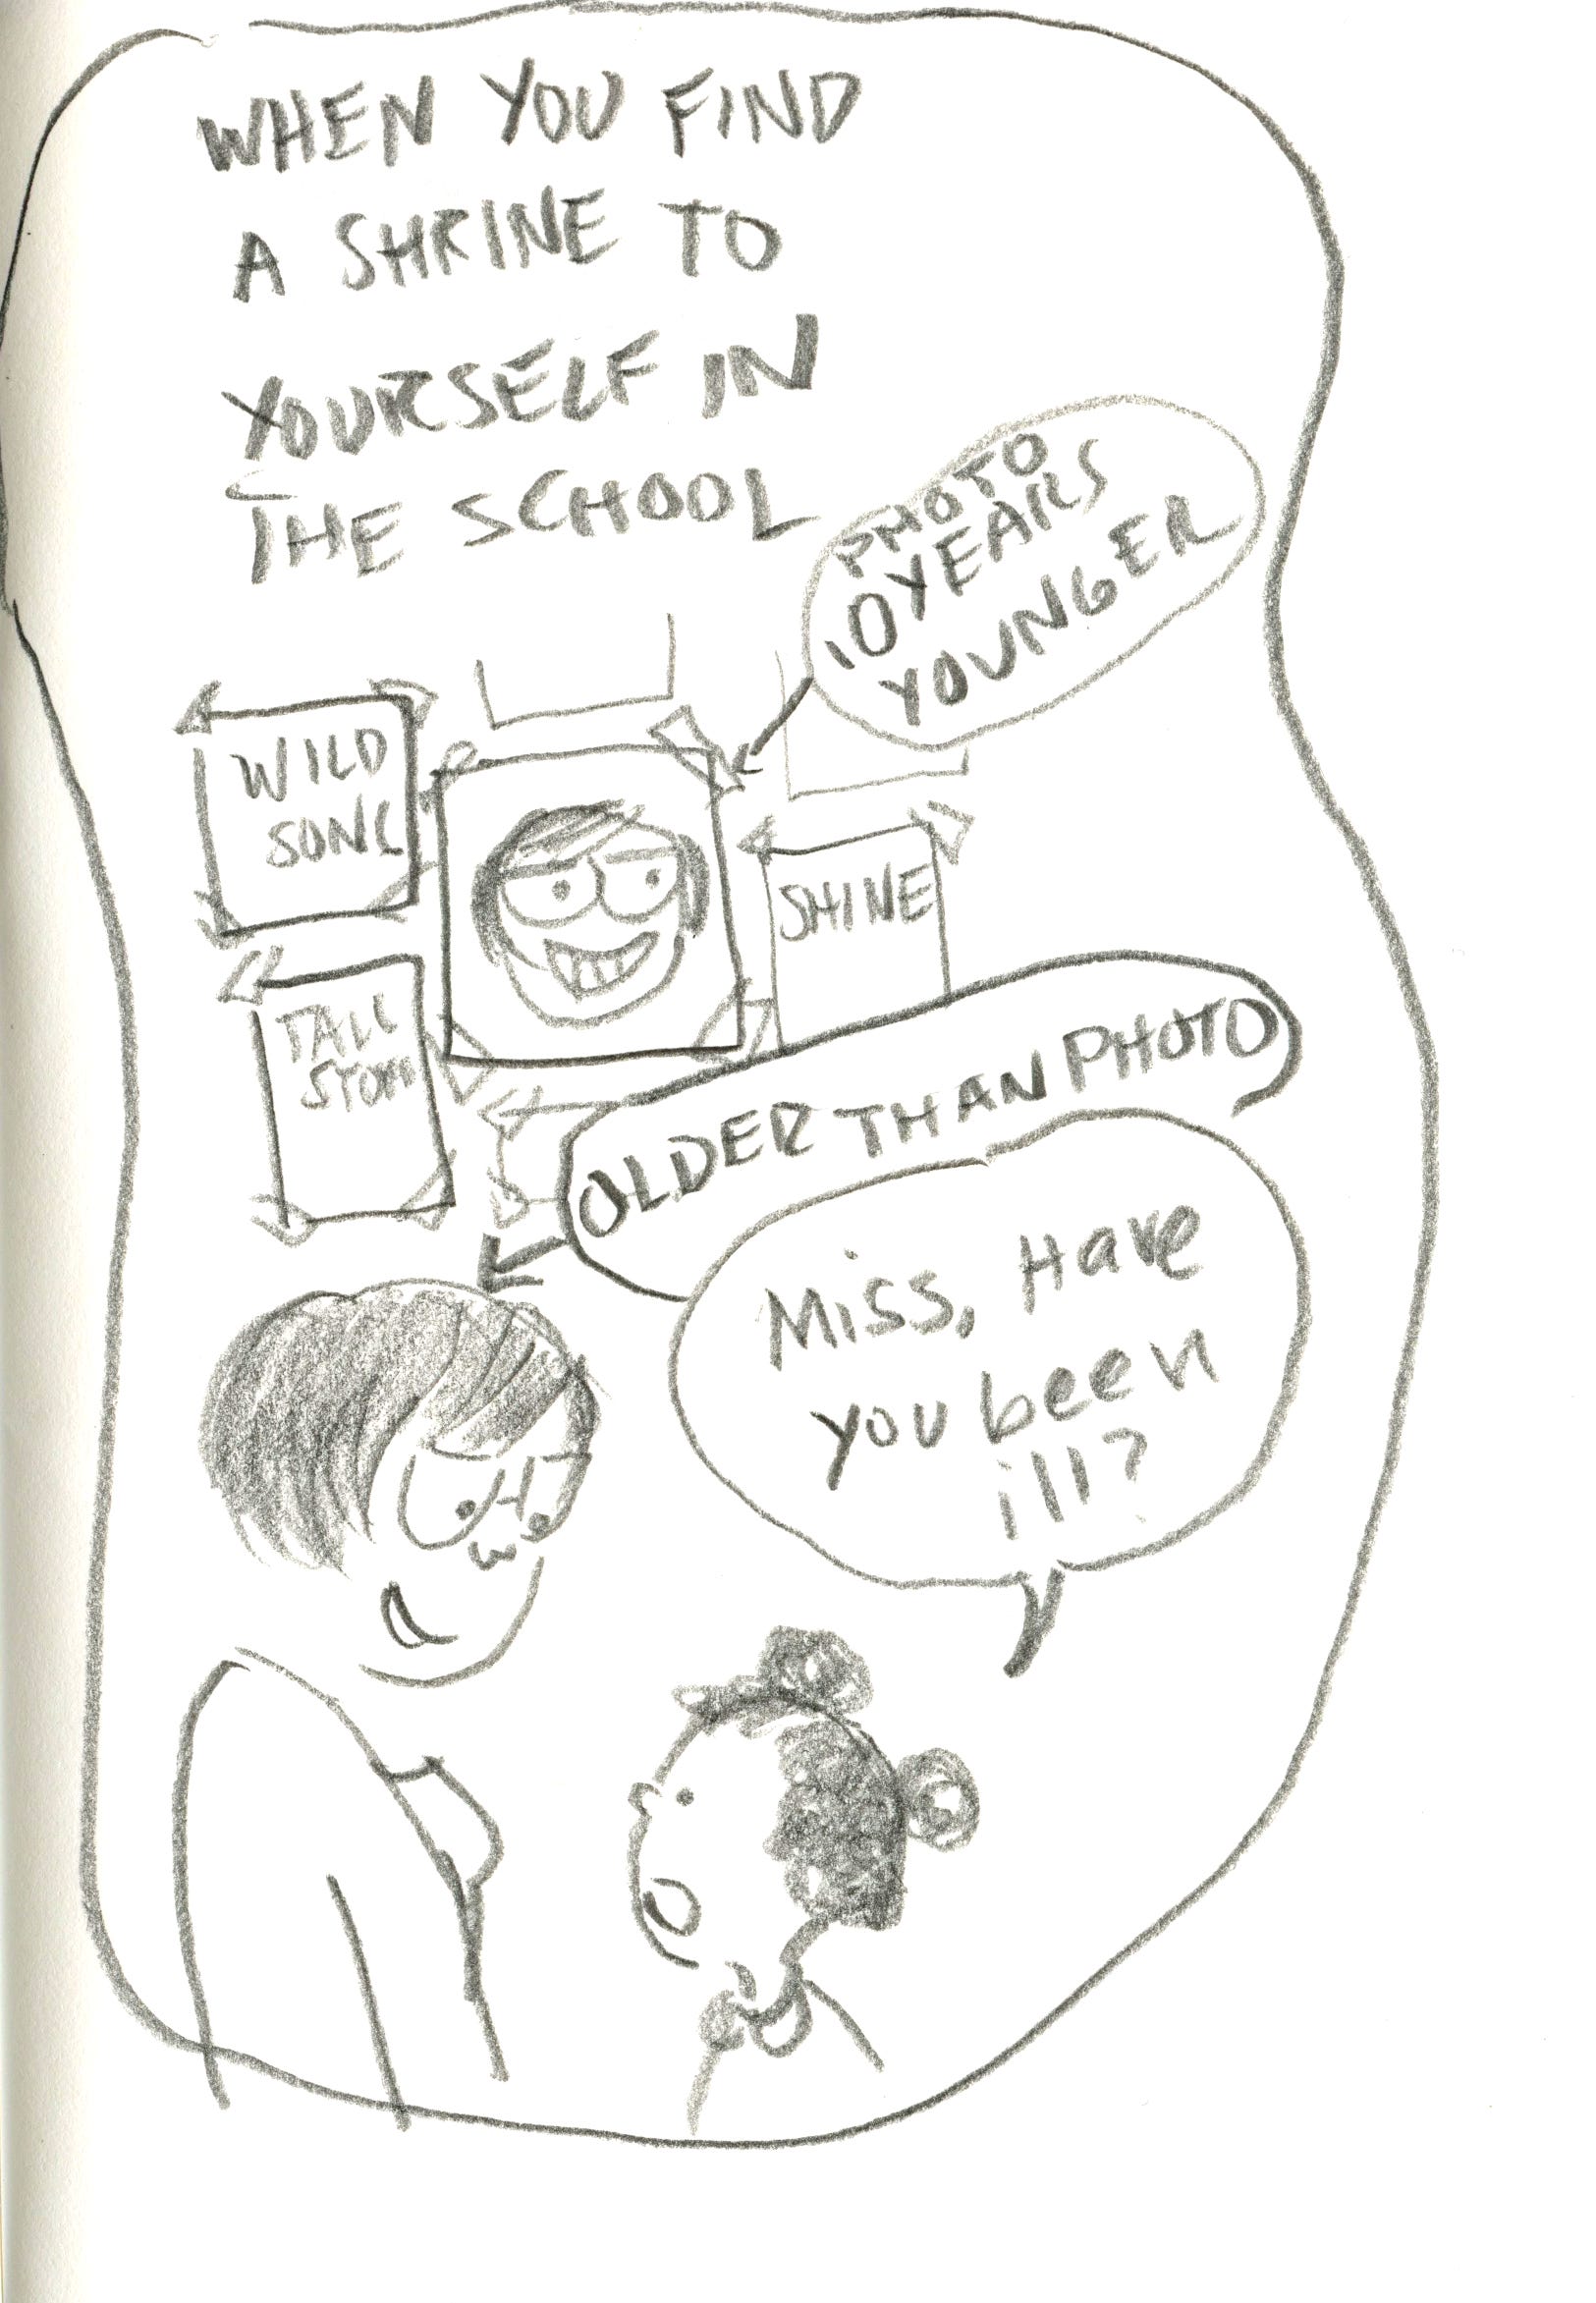 WHEN YOU FIND
A SHRINE TO
YOURSELF IN
THE SCHOOL
PHOTO
10 YEARS
YOUNGER
WILD
SONG
SHINE
TALL
STORY
OLDER THAN PHOTO
Miss, Have
you been
ill?